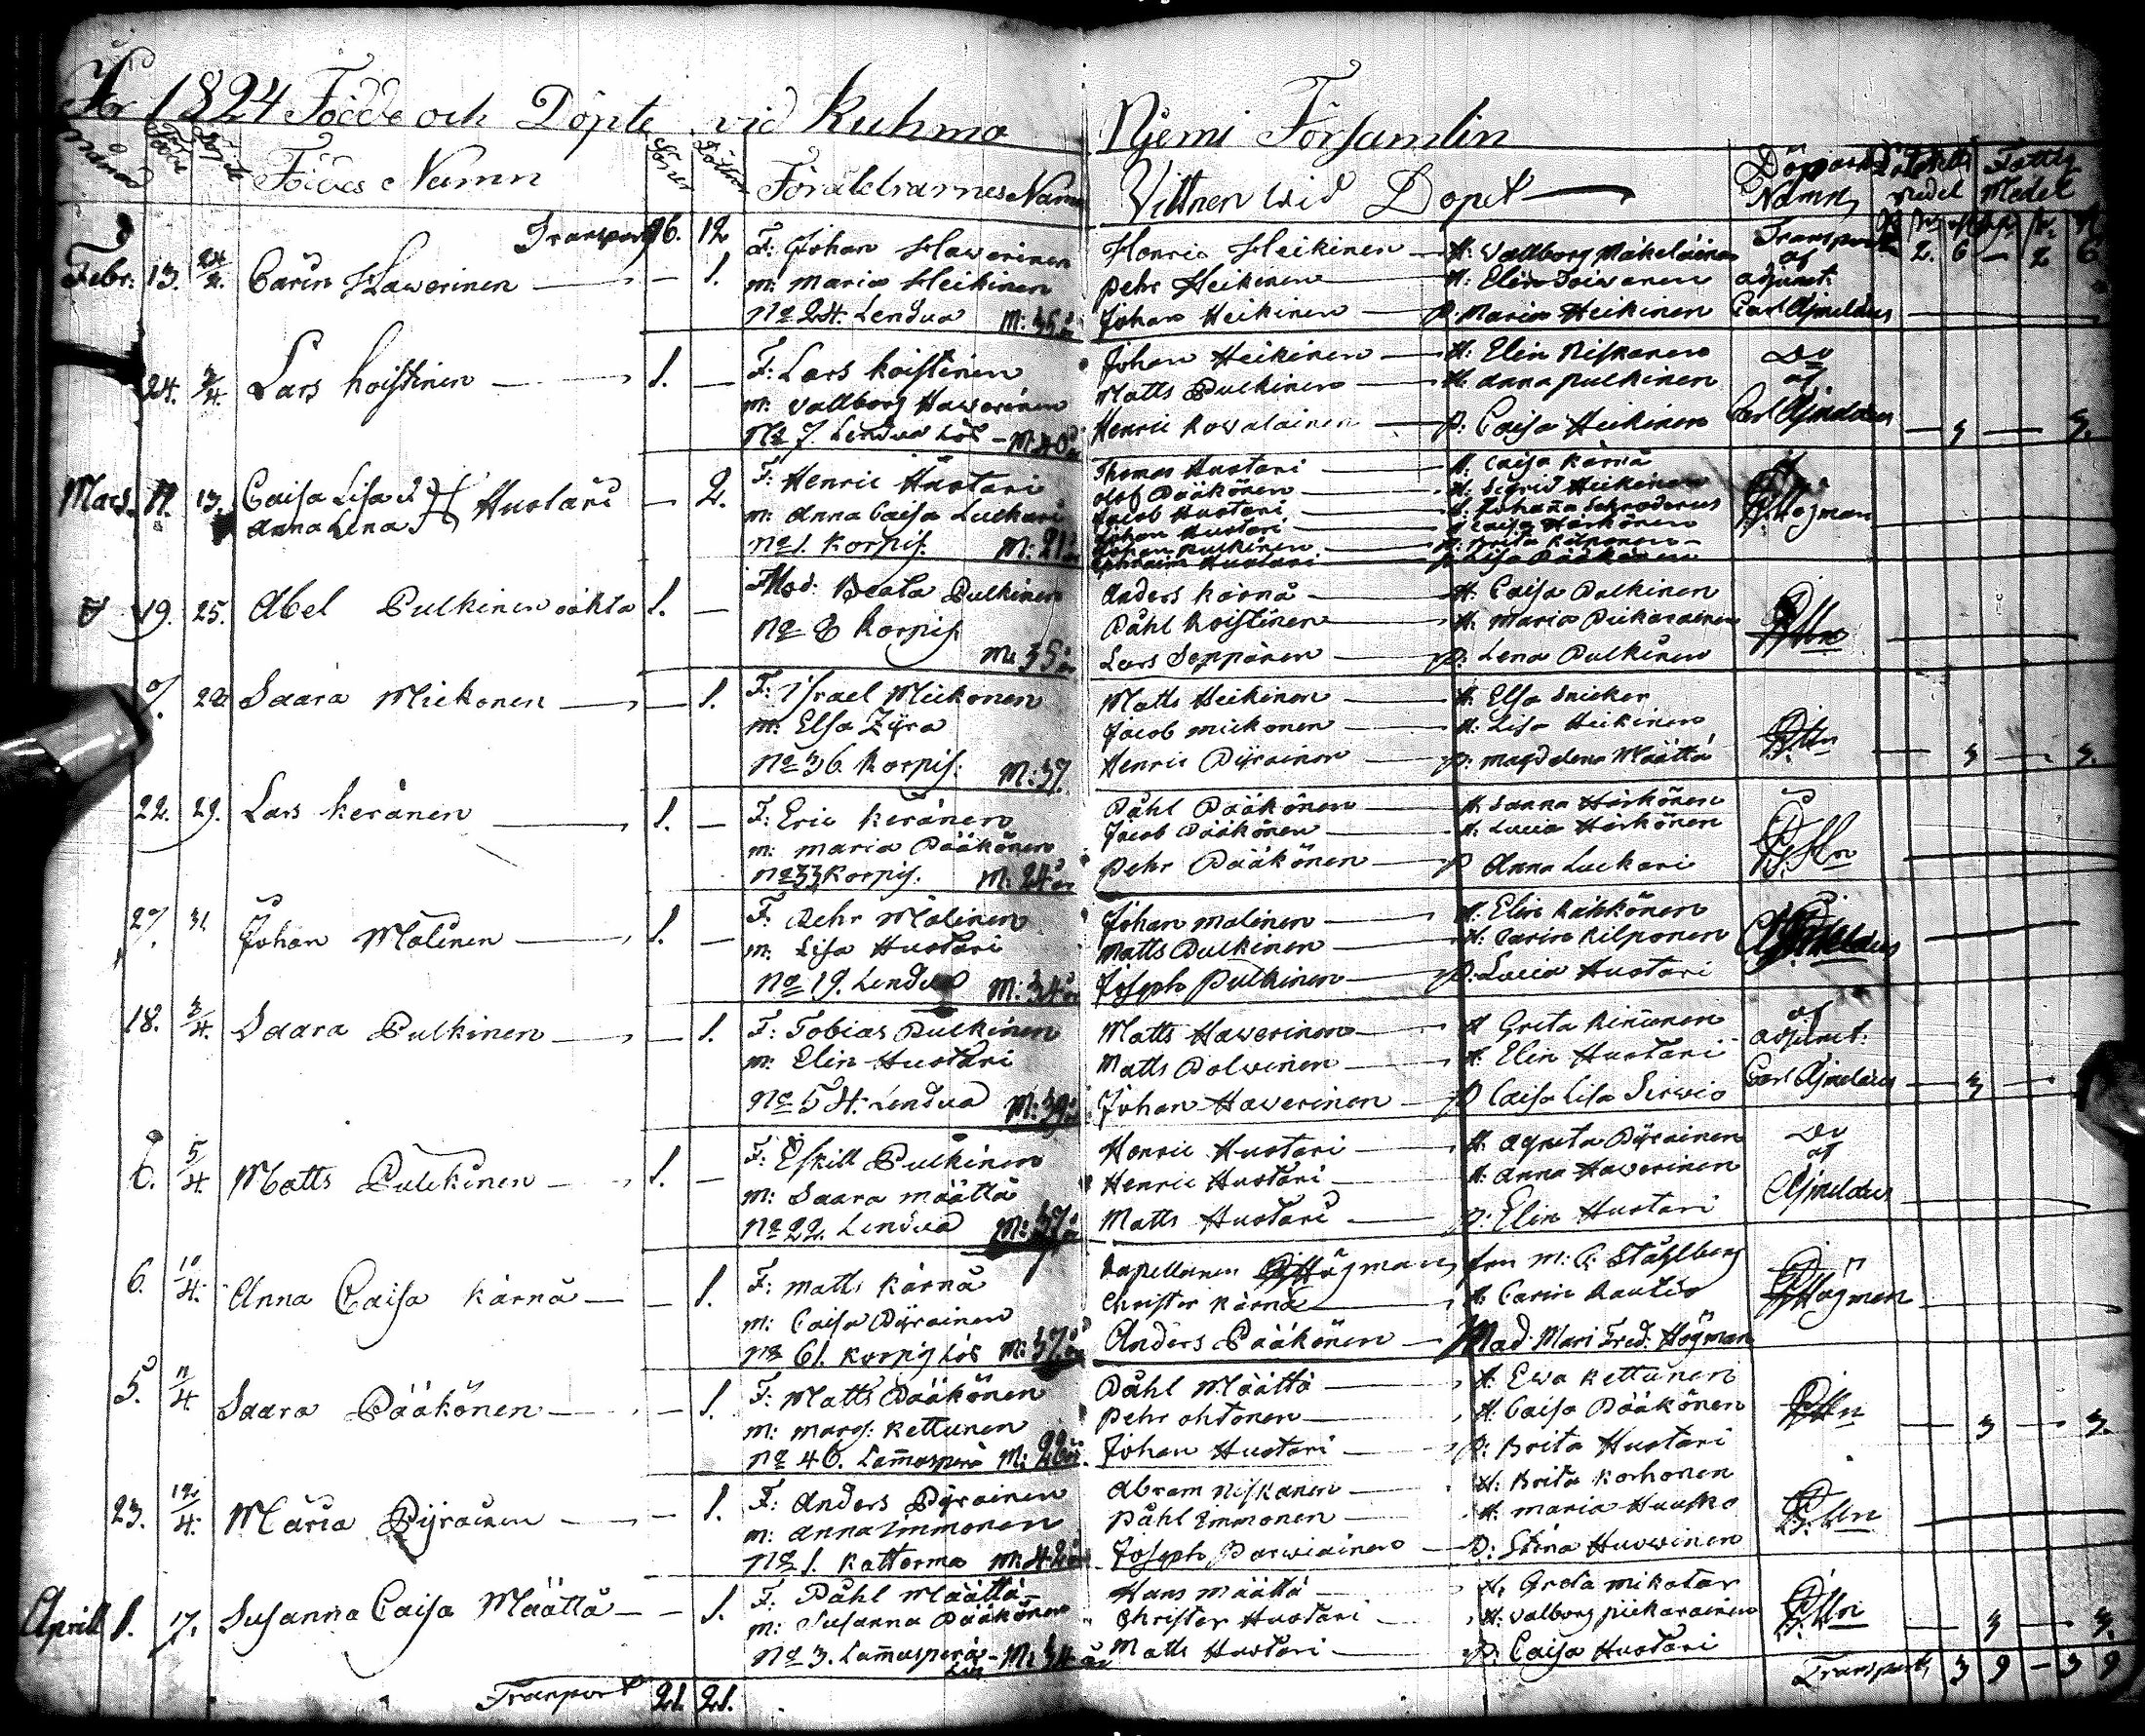 År 1824 Födde och Döpte vid Kuhmo Niemi Församlin
Månad Födde Döpte Födes Namn Söner Döttrar Föräldrarnes Namn Vittnen wid Dopet Döparens Namn medel Fattig Medel
Transport 16. 12 Transport 2. 6 — 2 6
Febr. 13. 24/2. Carin Hawerinen — 1. F: Johan Hawerinen Henric Heikinen H: Wallborg Mäkeläinen af
m: Maria Heikinen Pehr Heikinen H: Elin Toiwanen adjunct:
No 24. Lendua M: 35 år Johan Heikinen P: Maria Heikinen Carl Ajmelæus
24. 3/4. Lars Koistinen 1. — F: Lars Koistinen Johan Heikinen H: Elin Niskanen Do
m: Vallborg Hawerinen Matts Pulkinen H: Anna Pulkinen af
No 7. Lendua Lös M: 40 år Henric Kowalainen P: Caisa Heikinen Carl Ajmelæus — 3 — 3.
Mars. 11. 13. Caisa Lisa & Anna Lena Huotari — 2. F: Henric Huotari Thomas Huotari H: Caisa Kärnä
Olof Pääkönen H: Sigrid Heikinen
m: Anna Caisa Luckari Jacob Huotari H: Johanna Schroderus Högman
Johan Huotari Caisa Härkönen
No 1. Korpis. M: 21 år Johan Pulkinen Brita Kilponen
Ephraim Huotari P: Lisa Pääkönen
19. 25. Abel Pulkinen oäkta 1. — Mod: Beata Pulkinen Anders Kärnä H: Caisa Pulkinen
No 8 Korpis. Påhl Koistinen H: Maria Pickarainen
M: 35 år Lars Seppänen P: Lena Pulkinen
7. 28 Saara Mickonen — 1. F: Israel Mickonen Matts Heikinen H: Elsa Snicker
m: Elsa Zijra Jacob Mickonen H: Lisa Heikinen
No 36. Korpis: M: 37. Henric Pijrainen P: Magdalena Määttä — 3 — 3.
22. 29. Lars Keränen 1. — F: Eric Keränen Påhl Pääkönen H: Sanna Härkönen
m: Maria Pääkönen Jacob Pääkönen H: Lucia Härkönen
No 33 Korpis. M: 24 år Pehr Pääkönen P Anna Luckari
27. 31 Johan Malinen 1. — F: Pehr Malinen Johan Malinen H: Elin
m: Lisa Huotari Matts Pulkinen H: Carin Kilponen Ajmelæus
No 19. Lendua M: 34 år Joseph Pulkinen P: Lucia Huotari
18. 3/4. Saara Pulkinen — 1. F: Tobias Pulkinen Matts Hawerinen H Greta Kinunen af
m: Elin Huotari Matts Polwinen H: Elin Huotari adjunct:
No 54. Lendua M: 39 år Johan Hawerinen P Caisa Lisa Sirwio Carl Ajmelæus — 3 —
6. 5/4. Matts Pulckinen 1. — F: Eskill Pulkinen Henric Huotari H: Agneta Pijrainen Do
m: Saara Määttä Henric Huotari H: Anna Hawerinen af
No 22. Lendua M: 37 år Matts Huotari P: Elin Huotari Ajmelæus
6. 10/4. Anna Caisa Kärnä — 1. F: Matts Kärnä Kapellanen Högman fru M: C: Ståhlberg
m: Caisa Pijrainen Christer Kärnä H: Carin Rautio Högman
No 61. Korpis Lös M: 37 år Anders Pääkönen Mad. Mari Fred. Högman
5. 11/4 Saara Pääkönen — 1. F: Matts Pääkönen Påhl Määttä H: Ewa Kettunen
m: Marg: Kettunen Pehr Ahtonen H: Caisa Pääkönen
No 46. Lamaspera M: 28 år. Johan Huotari P: Brita Huotari — 3 — 3.
23. 12/4. Maria Pijrainen — 1. F: Anders Pijrainen Abram Niskanen H: Brita Korhonen
m: Anna Immonen Påhl Immonen H: Maria Huusko
No 1. Katterma M: 42 år Joseph Parwiainen P: Stina Huowinen
Aprill 1. 17. Susanna Caisa Määttä — 1. F: Påhl Määttä Hans Määttä H: Greta Mikotar
m: Susanna Pääkönen Christer Huotari H: Valborg Pickarainen
No 3. Lamaspera Lös M: 34 år Matts Huotari P: Caisa Huotari — 3 — 3.
Tranport 21. 21. Transport 3 9 — 3 9